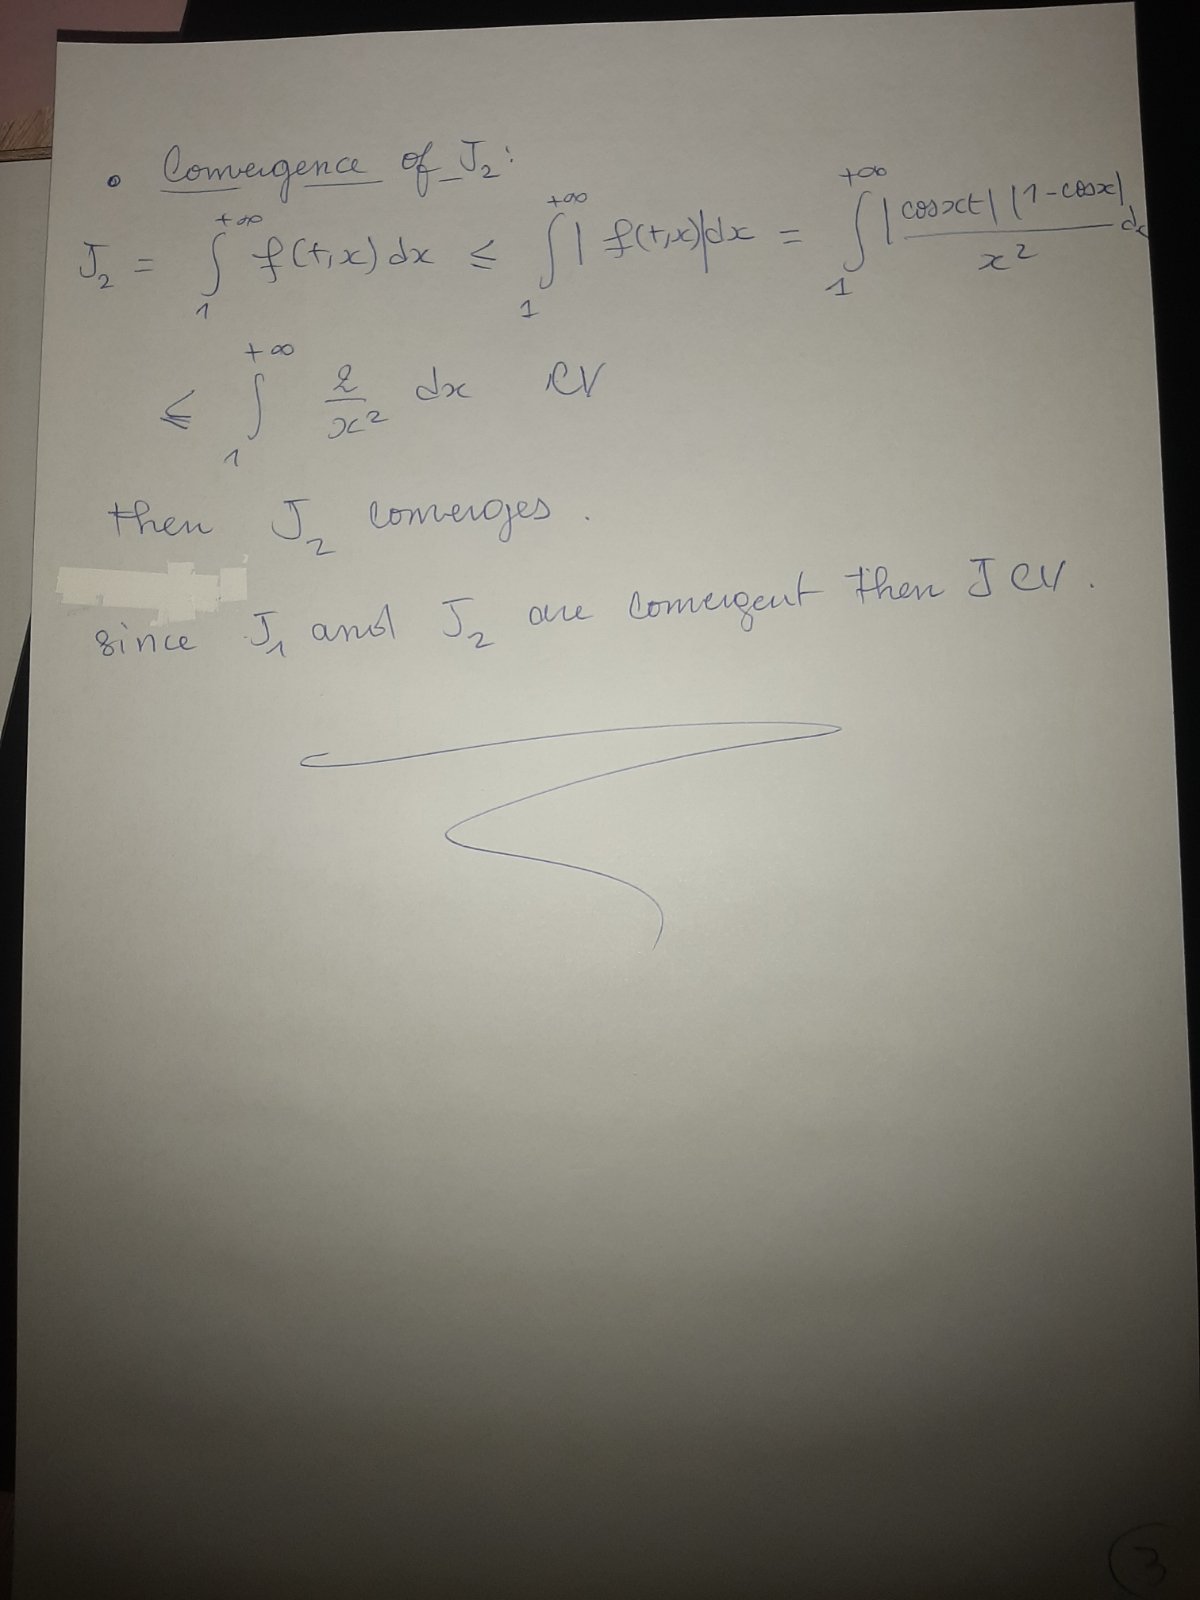 • Convergence of J₂:
J₂ = ∫₁^{+∞} f(t,x) dx ≤ ∫₁^{+∞} |f(t,x)| dx = ∫₁^{+∞} |cosxt| |1-cosx| / x² dx
≤ ∫₁^{+∞} 2/x² dx CV
then J₂ converges.
since J₁ and J₂ are convergent then J CV.
3